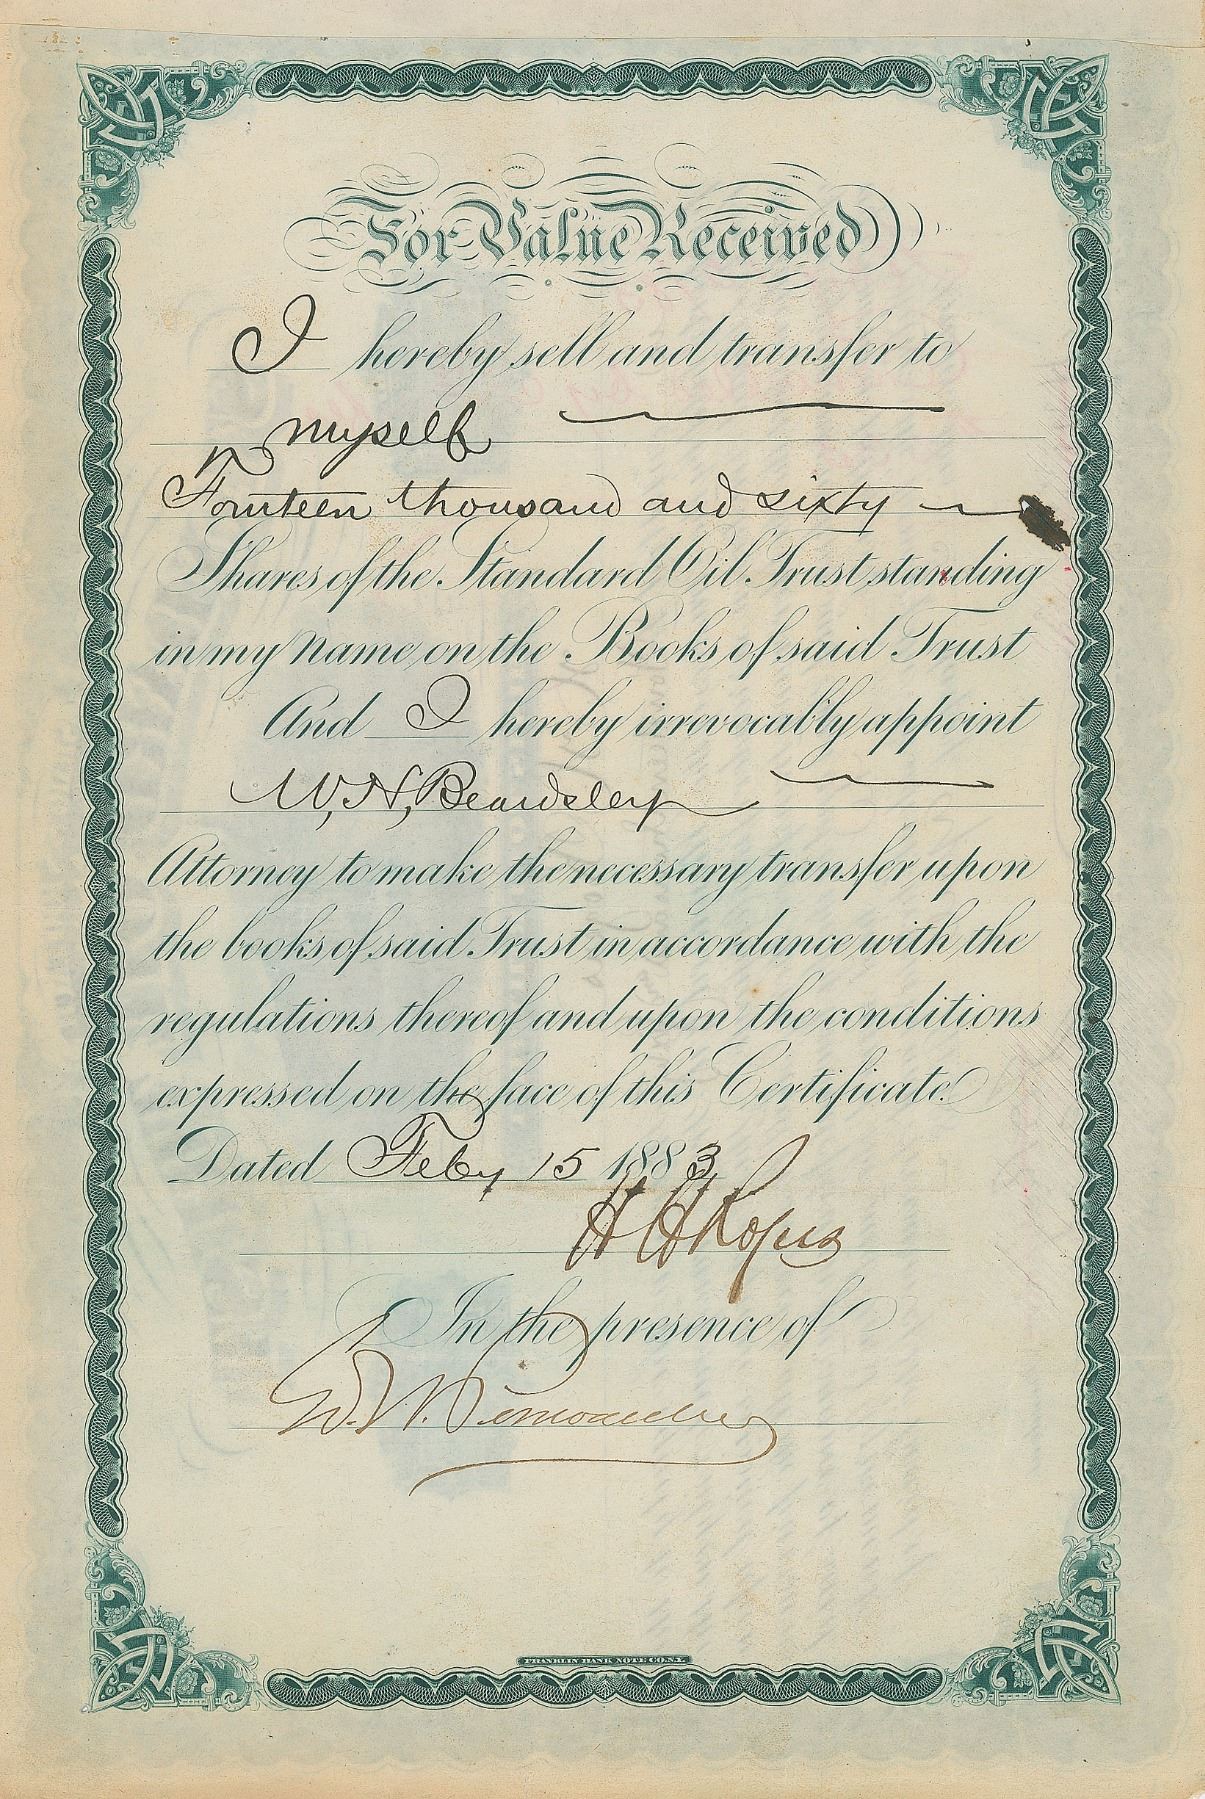 For Value Received
I hereby sell and transfer to
myself
Fourteen thousand and sixty
Shares of the Standard Oil Trust standing
in my name on the Books of said Trust
And I hereby irrevocably appoint
W. N. Beardsley
Attorney to make the necessary transfer upon
the books of said Trust in accordance with the
regulations thereof and upon the conditions
expressed on the face of this Certificate.
Dated Feby 15 1883
H H Rogers
In the presence of
FRANKLIN BANK NOTE CO. N.Y.